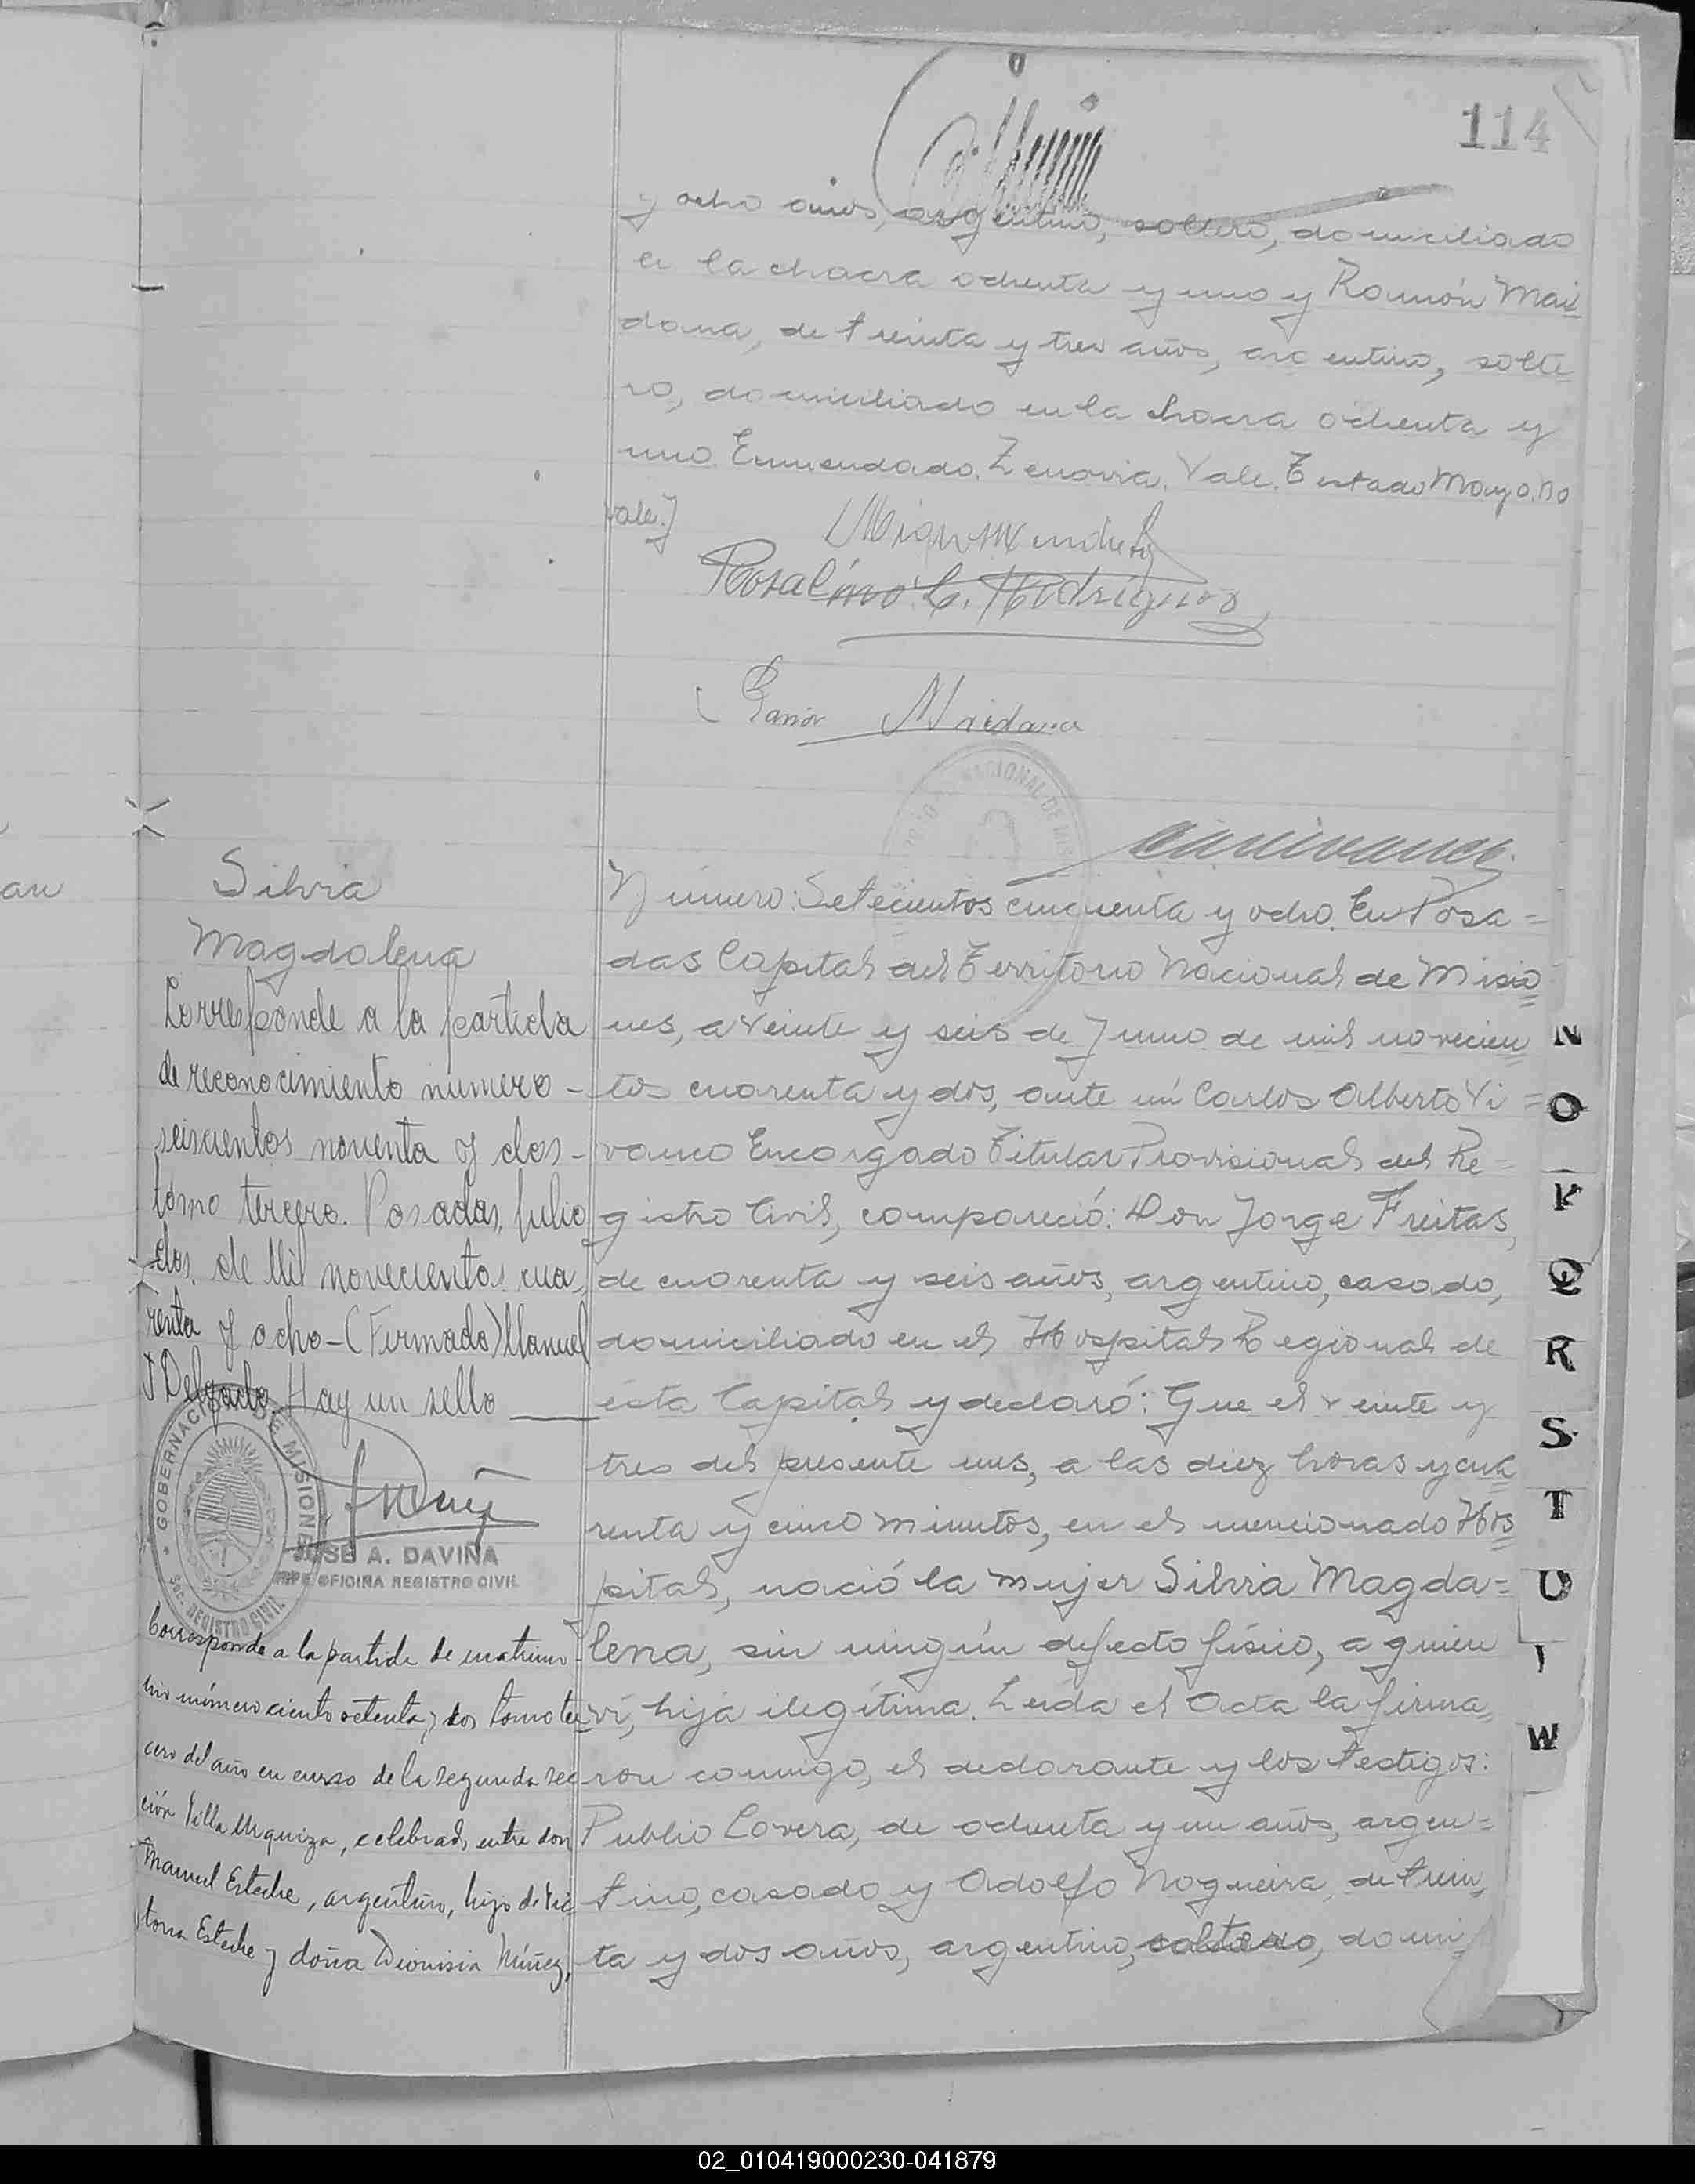 114
y ocho años, argentino, soltero, domiciliado
en la chacra ochenta y uno y Ramón Mai=
dana, de treinta y tres años, argentino, solte=
ro, domiciliado en la chacra ochenta y
uno. Enmendado. Zenovia. Vale. Testado Mayo. no
vale.
Rosalino C. Rodríguez
Ramón Maidana
Silvia
Magdalena
Corresponde a la partida
de reconocimiento número -
seiscientos noventa y dos -
tomo tercero. Posadas, julio
dos, de Mil novecientos cua
renta y ocho - (Firmado) Manuel
J Delgado. Hay un sello
GOBERNACION DE MISIONES
SEC. REGISTRO CIVIL
JOSE A. DAVIÑA
JEFE OFICINA REGISTRO CIVIL
Corresponde a la partida de matrimo-
nio número ciento ochenta y dos tomo ter
cero del año en curso de la segunda sec
ción Villa Urquiza, celebrado entre don
Manuel Esteche, argentino, hijo de Vic
toria Esteche y doña Dionisia Núñez,
Número: Setecientos cincuenta y ocho. En Posa=
das Capital del Territorio Nacional de Misio=
nes, a veinte y seis de Junio de mil novecien
tos cuarenta y dos, ante mí Carlos Alberto Vi=
vanco Encargado Titular Provisional del Re=
gistro Civil, compareció: Don Jorge Freitas,
de cuarenta y seis años, argentino, casado,
domiciliado en el Hospital Regional de
ésta Capital y declaró: Que el veinte y
tres del presente mes, a las diez horas y cua
renta y cinco minutos, en el mencionado Hos=
pital, nació la mujer Silvia Magda=
lena, sin ningún defecto físico, a quien
ví, hija ilegítima. Leída el Acta la firma=
ron conmigo, el declarante y los testigos:
Publio Lovera, de ochenta y un años, argen=
tino, casado y Adolfo Nogueira, de trein=
ta y dos años, argentino, soltero, domi
N
O
P
Q
R
S
T
U
W
02_010419000230-041879